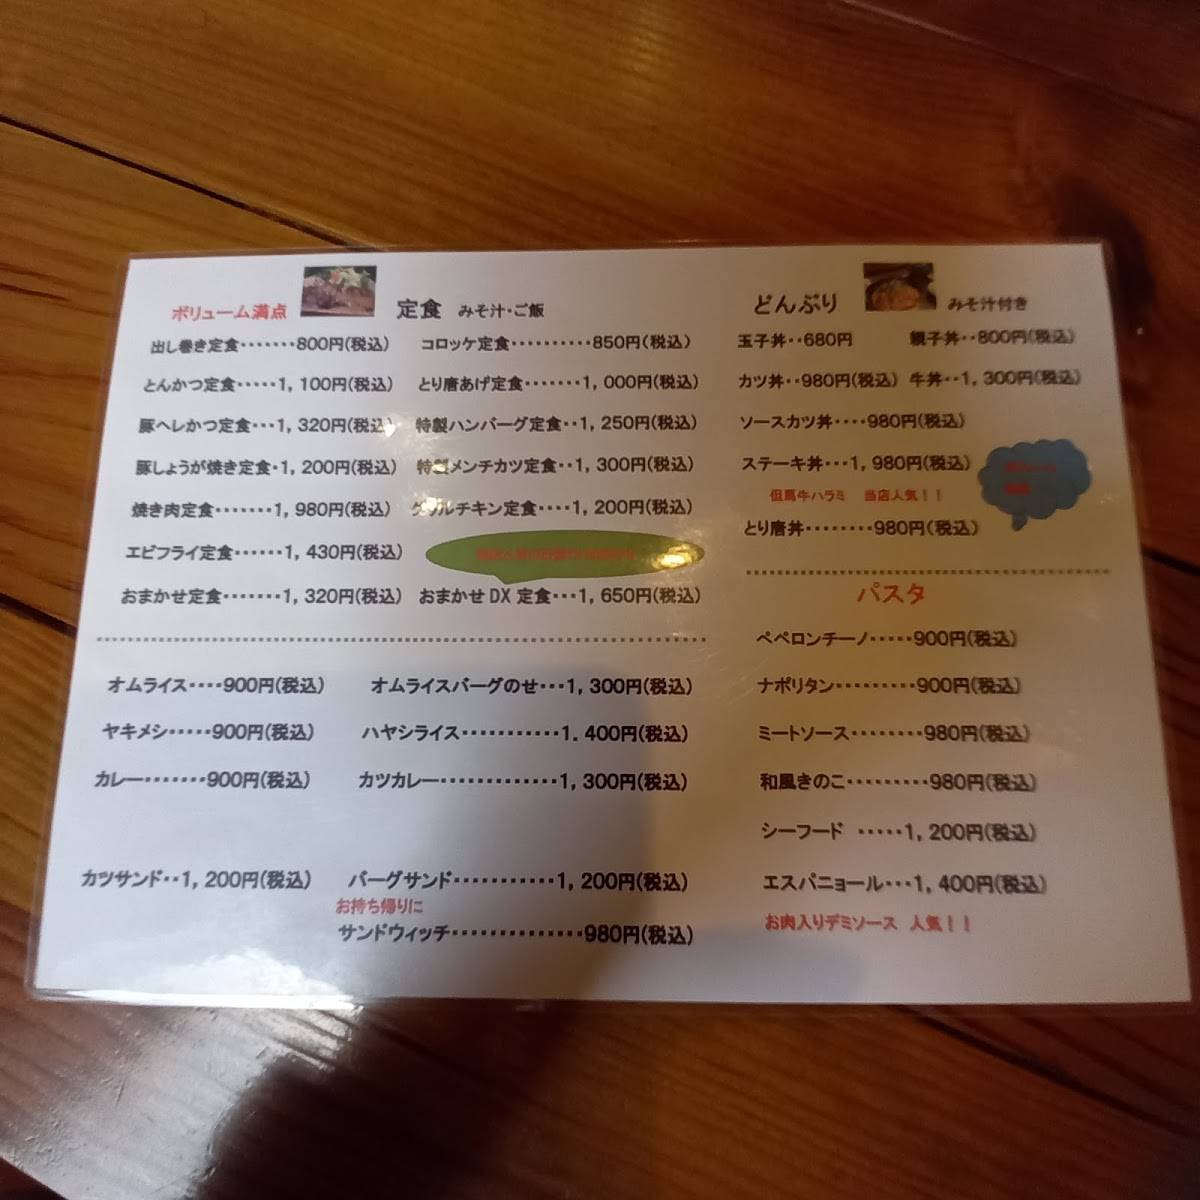 ボリューム満点 定食 みそ汁・ご飯
出し巻き定食・・・・・・・800円(税込) コロッケ定食・・・・・・・・・・850円(税込)
とんかつ定食・・・・・1,100円(税込) とり唐あげ定食・・・・・・・1,000円(税込)
豚ヘレかつ定食・・・1,320円(税込) 特製ハンバーグ定食・・1,250円(税込)
豚しょうが焼き定食・1,200円(税込) 特製メンチカツ定食・・1,300円(税込)
焼き肉定食・・・・・・・1,980円(税込) グリルチキン定食・・・・1,200円(税込)
エビフライ定食・・・・・・1,430円(税込)
おまかせ定食・・・・・・・1,320円(税込) おまかせDX定食・・・1,650円(税込)
オムライス・・・・900円(税込) オムライスバーグのせ・・・1,300円(税込)
ヤキメシ・・・・・900円(税込) ハヤシライス・・・・・・・・・・・1.400円(税込)
カレー・・・・・・・900円(税込) カツカレー・・・・・・・・・・・・・1,300円(税込)
カツサンド・・1,200円(税込) バーグサンド・・・・・・・・・・・1,200円(税込)
お持ち帰りに
サンドウィッチ・・・・・・・・・・・・・・980円(税込)
どんぶり みそ汁付き
玉子丼・・680円 親子丼・・800円(税込)
カツ丼・・980円(税込) 牛丼・・1,300円(税込)
ソースカツ丼・・・・980円(税込)
ステーキ丼・・・1,980円(税込)
但馬牛ハラミ 当店人気!!
とり唐丼・・・・・・・・980円(税込)
パスタ
ペペロンチーノ・・・・・900円(税込)
ナポリタン・・・・・・・・・900円(税込)
ミートソース・・・・・・・・980円(税込)
和風きのこ・・・・・・・・・980円(税込)
シーフード ・・・・・1,200円(税込)
エスパニョール・・・1,400円(税込)
お肉入りデミソース 人気!!